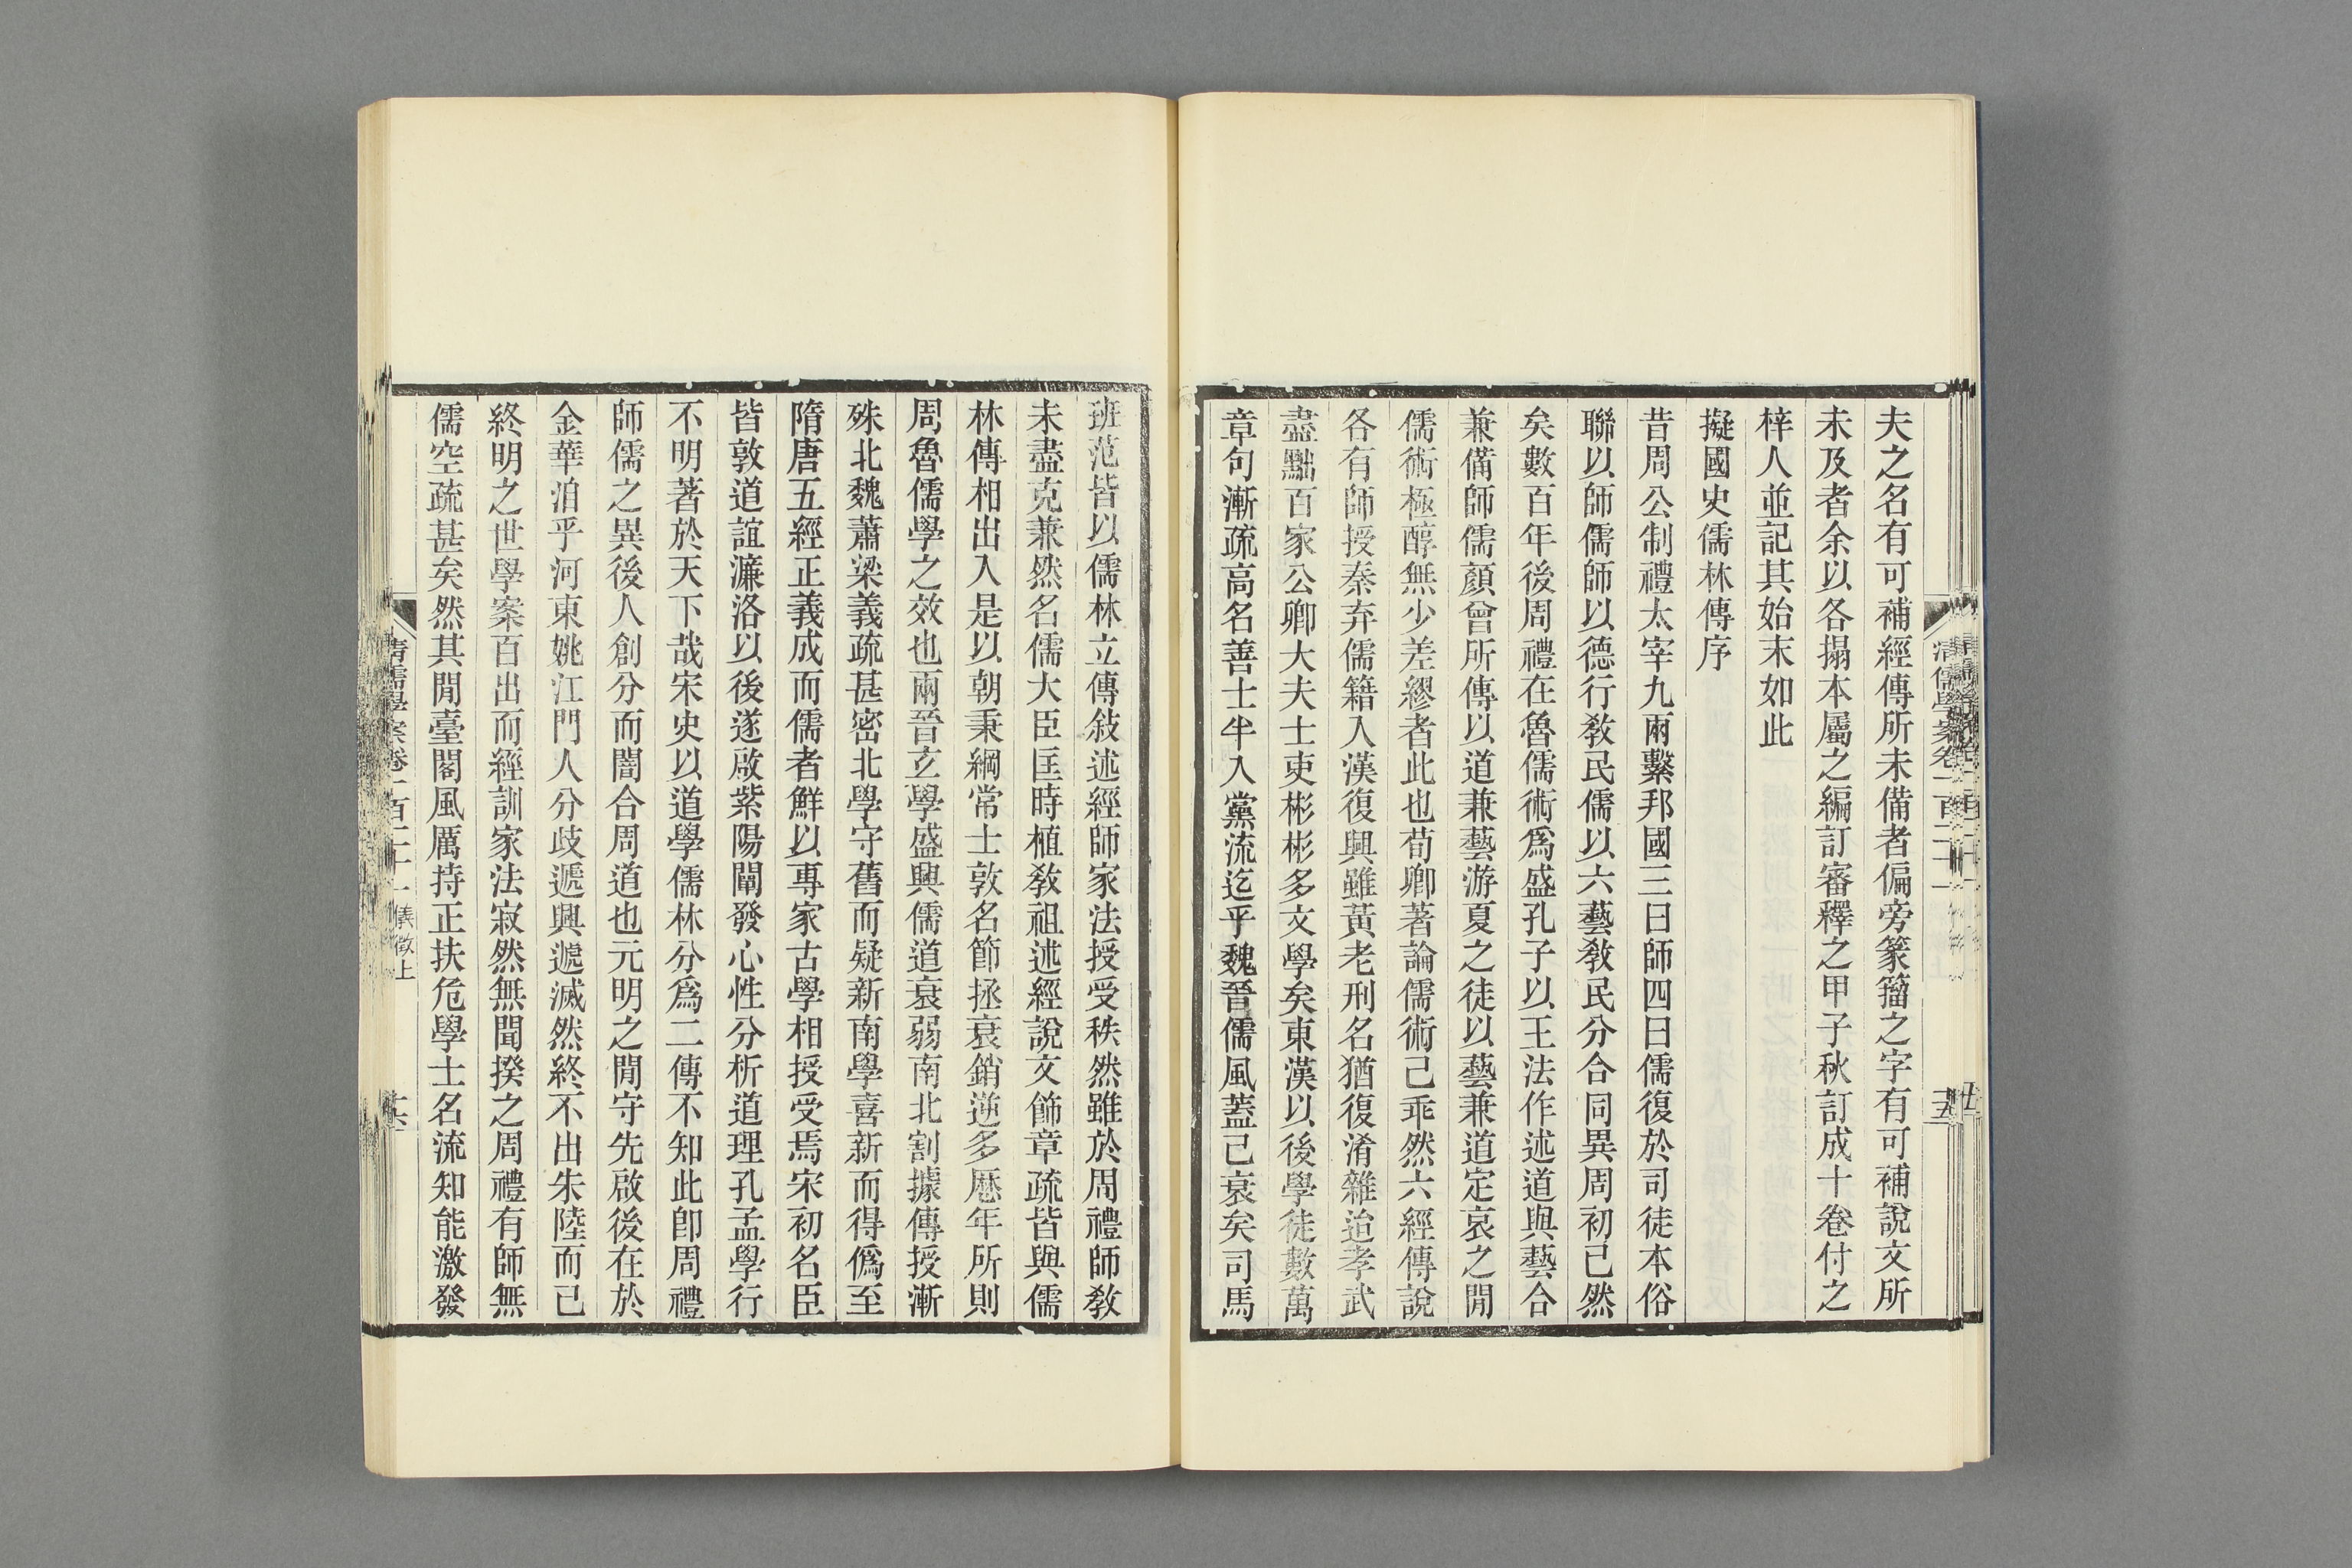 夫之名有可補經傳所未備者偏旁篆籀之字有可補說文所
未及者余以各搨本屬之編訂審釋之甲子秋訂成十卷付之
梓人並記其始末如此
擬國史儒林傳序
昔周公制禮太宰九兩繫邦國三曰師四曰儒復於司徒本俗
聯以師儒師以德行敎民儒以六藝敎民分合同異周初已然
矣數百年後周禮在魯儒術爲盛孔子以王法作述道與藝合
兼備師儒顏曾所傳以道兼藝游夏之徒以藝兼道定哀之閒
儒術極醇無少差繆者此也荀卿著論儒術已乖然六經傳說
各有師授秦弃儒籍入漢復興雖黃老刑名猶復淆雜迨孝武
盡黜百家公卿大夫士吏彬彬多文學矣東漢以後學徒數萬
章句漸疏高名善士半入黨流迄乎魏晉儒風蓋已衰矣司馬
清儒學案卷一百二十一
十五
班范皆以儒林立傳敍述經師家法授受秩然雖於周禮師敎
未盡克兼然名儒大臣匡時植敎祖述經說文飾章疏皆與儒
林傳相出入是以朝秉綱常士敦名節拯衰銷逆多歷年所則
周魯儒學之效也兩晉玄學盛興儒道衰弱南北割據傳授漸
殊北魏蕭梁義疏甚密北學守舊而疑新南學喜新而得僞至
隋唐五經正義成而儒者鮮以專家古學相授受焉宋初名臣
皆敦道誼濂洛以後遂啟紫陽闡發心性分析道理孔孟學行
不明著於天下哉宋史以道學儒林分爲二傳不知此卽周禮
師儒之異後人創分而闇合周道也元明之閒守先啟後在於
金華洎乎河東姚江門人分歧遞興遞滅然終不出朱陸而已
終明之世學案百出而經訓家法寂然無聞揆之周禮有師無
儒空疏甚矣然其閒臺閣風厲持正扶危學士名流知能激發
清儒學案卷一百二十一 儀徵上
十六